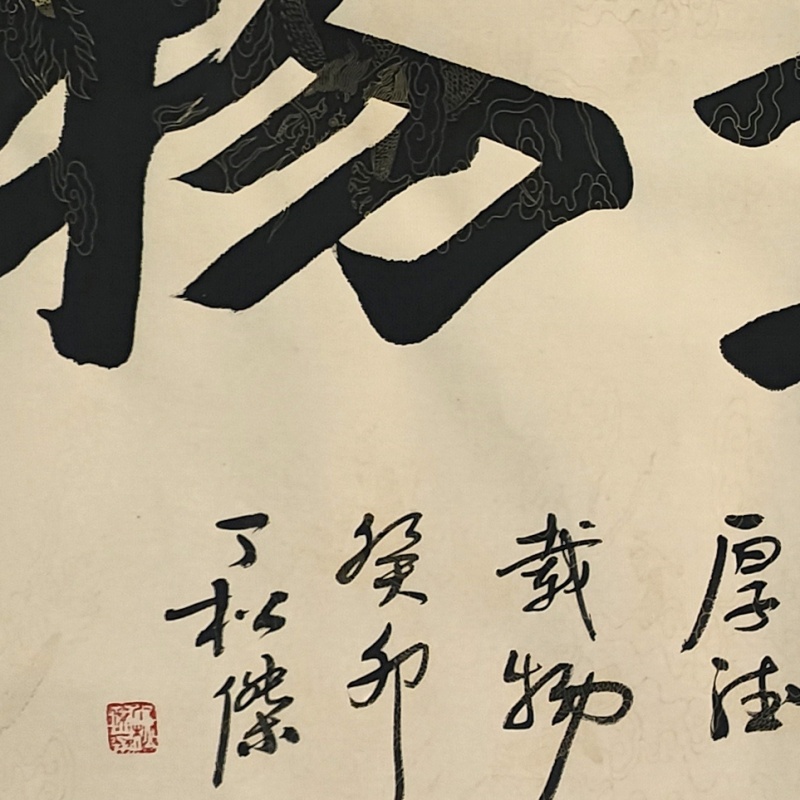 物
厚德
载物
癸卯
丁松傑